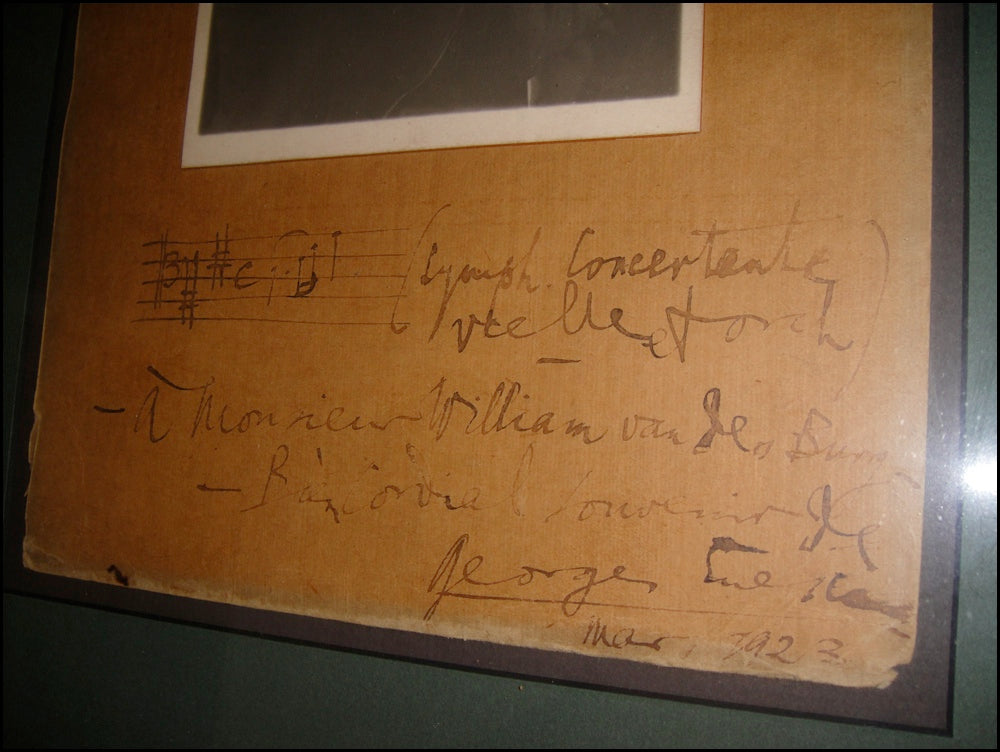 (Symph. Concertante
vcelle & orch)
– à Monsieur William van der Burg
– Bien Cordial Souvenir de
Georges Enescou
Mars, 1923